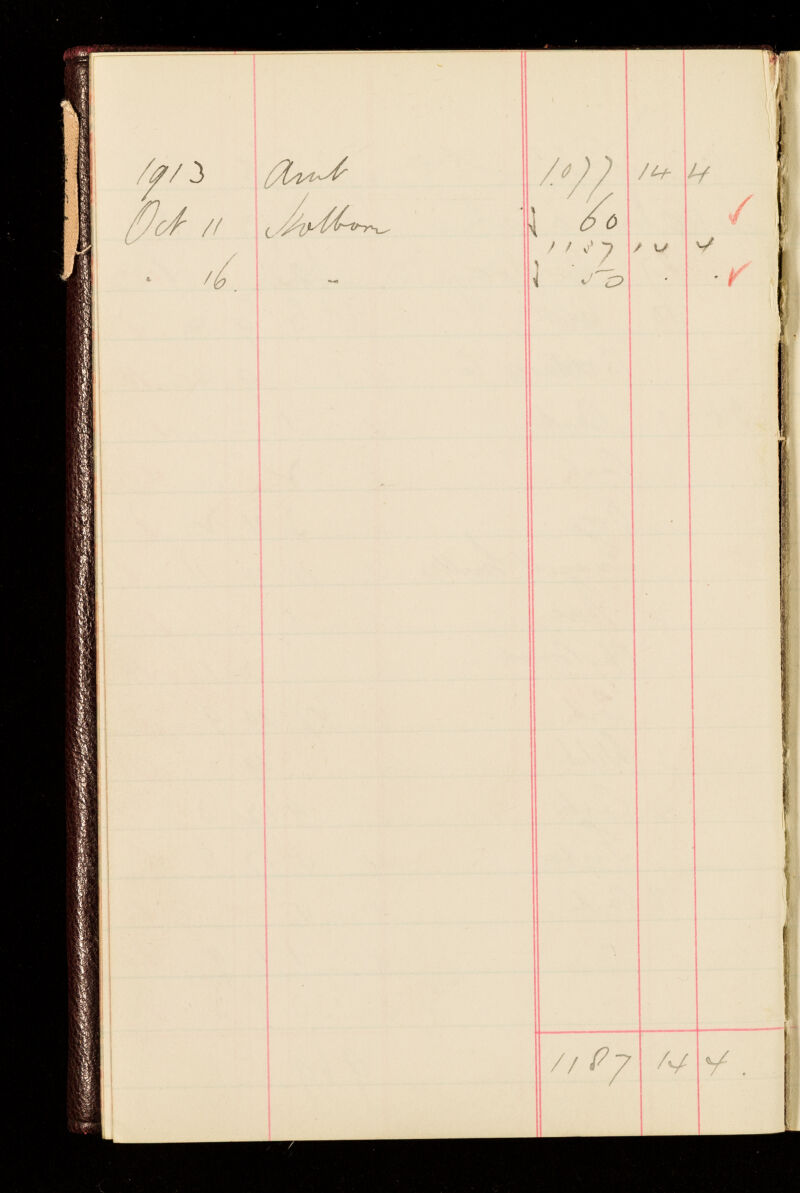 1913 Amt 1.077 14 4
Oct 11 Holborn 60 ✓
1187 14 4
" 16. " 50 . . ✓
1187 14 4.